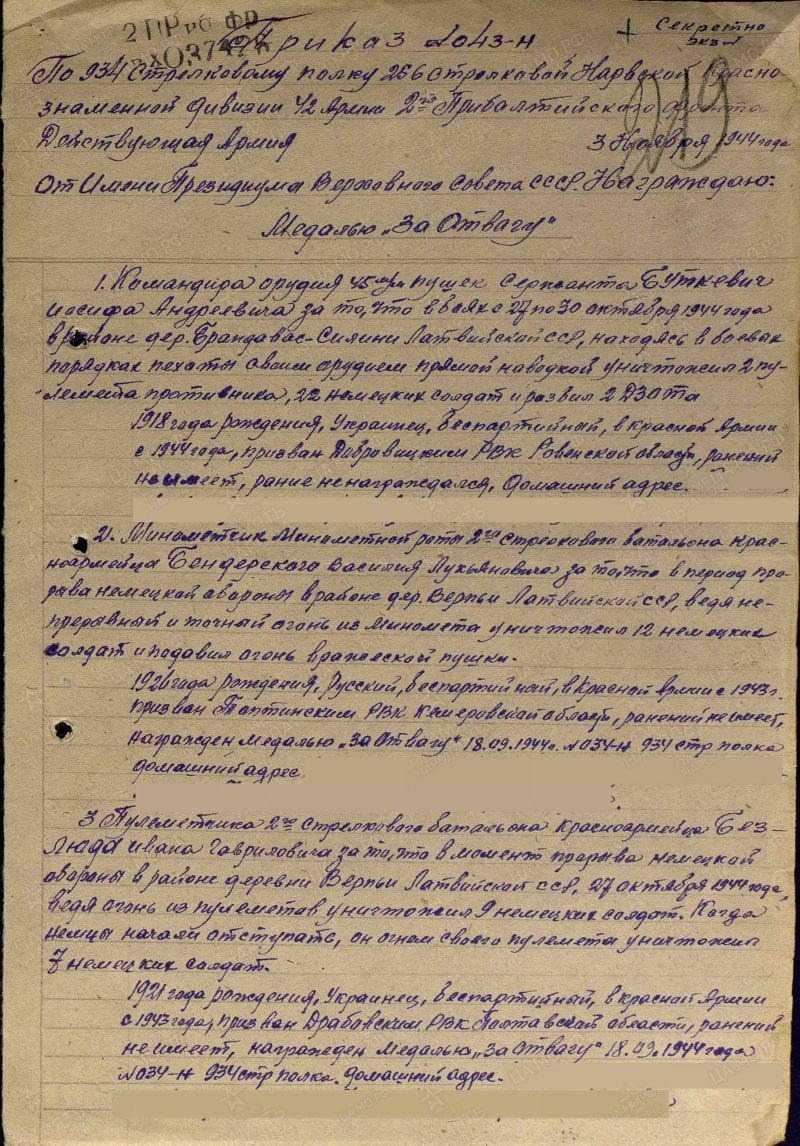 2 ПРИБ ФР
ВХО.37426
Приказ №043-Н
Секретно
экз. №
По 934 Стрелковому полку 256 Стрелковой Нарвской Красно-
219
знаменной дивизии 42 Армии 2го Прибалтийского фронта
Действующая Армия 3 Ноября 1944 года
От Имени Президиума Верховного Совета СССР Награждаю:
Медалью „За Отвагу"
1. Командира орудия 45 м/м пушек Сержанта Буткевич
иосифа Андреевича за то, что в боях с 27 по 30 октября 1944 года
в районе дер. Брандавас-Силини Латвийской ССР, находясь в боевых
порядках пехоты своим орудием прямой наводкой уничтожил 2 пу-
лемета противника, 22 немецких солдат и развил 2 ДЗОТа
1918 года рождения, Украинец, беспартийный, в Красной Армии
с 1944 года, призван Домбровицким РВК Ровенской области, ранений
не имеет, рание не награждался, домашний адрес.
2. Минометчик Минометной роты 2го стрелкового батальона крас-
ноармейца Бендерского Василия Лукьяновича за то, что в период про-
рыва немецкой обороны в районе дер. Верпьи Латвийской ССР, ведя не-
прерывный и точный огонь из Миномета уничтожил 12 немецких
солдат и подавил огонь вражеской пушки.
1926 года рождения, Русский, беспартийный, в Красной армии с 1943 г.
призван Топкинским РВК Кемеровской области, ранений не имеет,
награжден Медалью „За Отвагу" 18.09.1944г. №034-Н 934 стр полка
домашний адрес
3. Пулеметчика 2го стрелкового батальона красноармейца Без-
люда ивана Гавриловича за то, что в момент прорыва немецкой
обороны в районе деревни Верпьи Латвийской ССР, 27 октября 1944 года,
ведя огонь из пулеметов уничтожил 9 немецких солдат. Когда
немцы начали отступать, он огнем своего пулемета уничтожил
7 немецких солдат.
1921 года рождения, Украинец, беспартийный, в красной Армии
с 1943 года, призван Драбовским РВК Полтавской области, ранений
не имеет, награжден Медалью „За Отвагу" 18.09.1944 года
№034-Н 934 стр полка. домашний адрес.